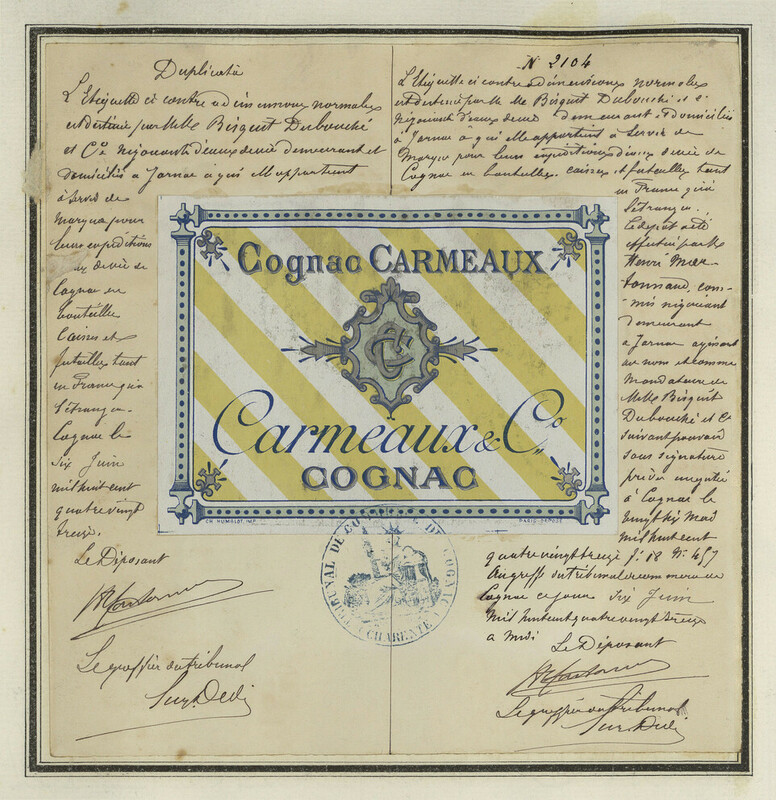 Duplicata
L'Etiquette ci contre a dimensions normales
est destinée par MMs Bisquit Dubouché
et Cie négociants d'eaux de vie demeurant et
domiciliés à Jarnac à qui elle appartient
à servir de
marque pour
leurs expéditions
eau de vie de
Cognac en
bouteilles
Caisses et
futailles tant
en France qu'à
l'étranger.
Cognac le
six Juin
mil huit cent
quatre vingt
treize.
Le Déposant
Le greffier du tribunal
N 2104
L'Etiquette ci contre a dimensions normales
est destinée par MM Bisquit Dubouché et Cie
négociants d'eaux de vie demeurant et domiciliés
à Jarnac à qui elle appartient à servir de
Marque pour leurs expéditions d'eaux de vie de
Cognac en bouteilles, caisses et futailles tant
en France qu'à
l'étranger.
Le dépôt a été
effectué par Mr
Henri
commis négociant
demeurant
à Jarnac agissant
au nom et comme
Mandataire de
MMs Bisquit
Dubouché et Cie
suivant pouvoir
sous signature
privée enregistré
à Cognac le
vingt six Mai
mil huit cent
quatre vingt treize fo 18 No 457
Au greffe du tribunal de commerce de
Cognac ce jour six Juin
mil huit cent quatre vingt treize
a midi
Le Déposant
Le greffier du tribunal
Cognac CARMEAUX
Carmeaux & Co.
COGNAC
CH. HUMBLOT, IMP.
TRIBUNAL DE COMMERCE DE COGNAC
(CHARENTE)